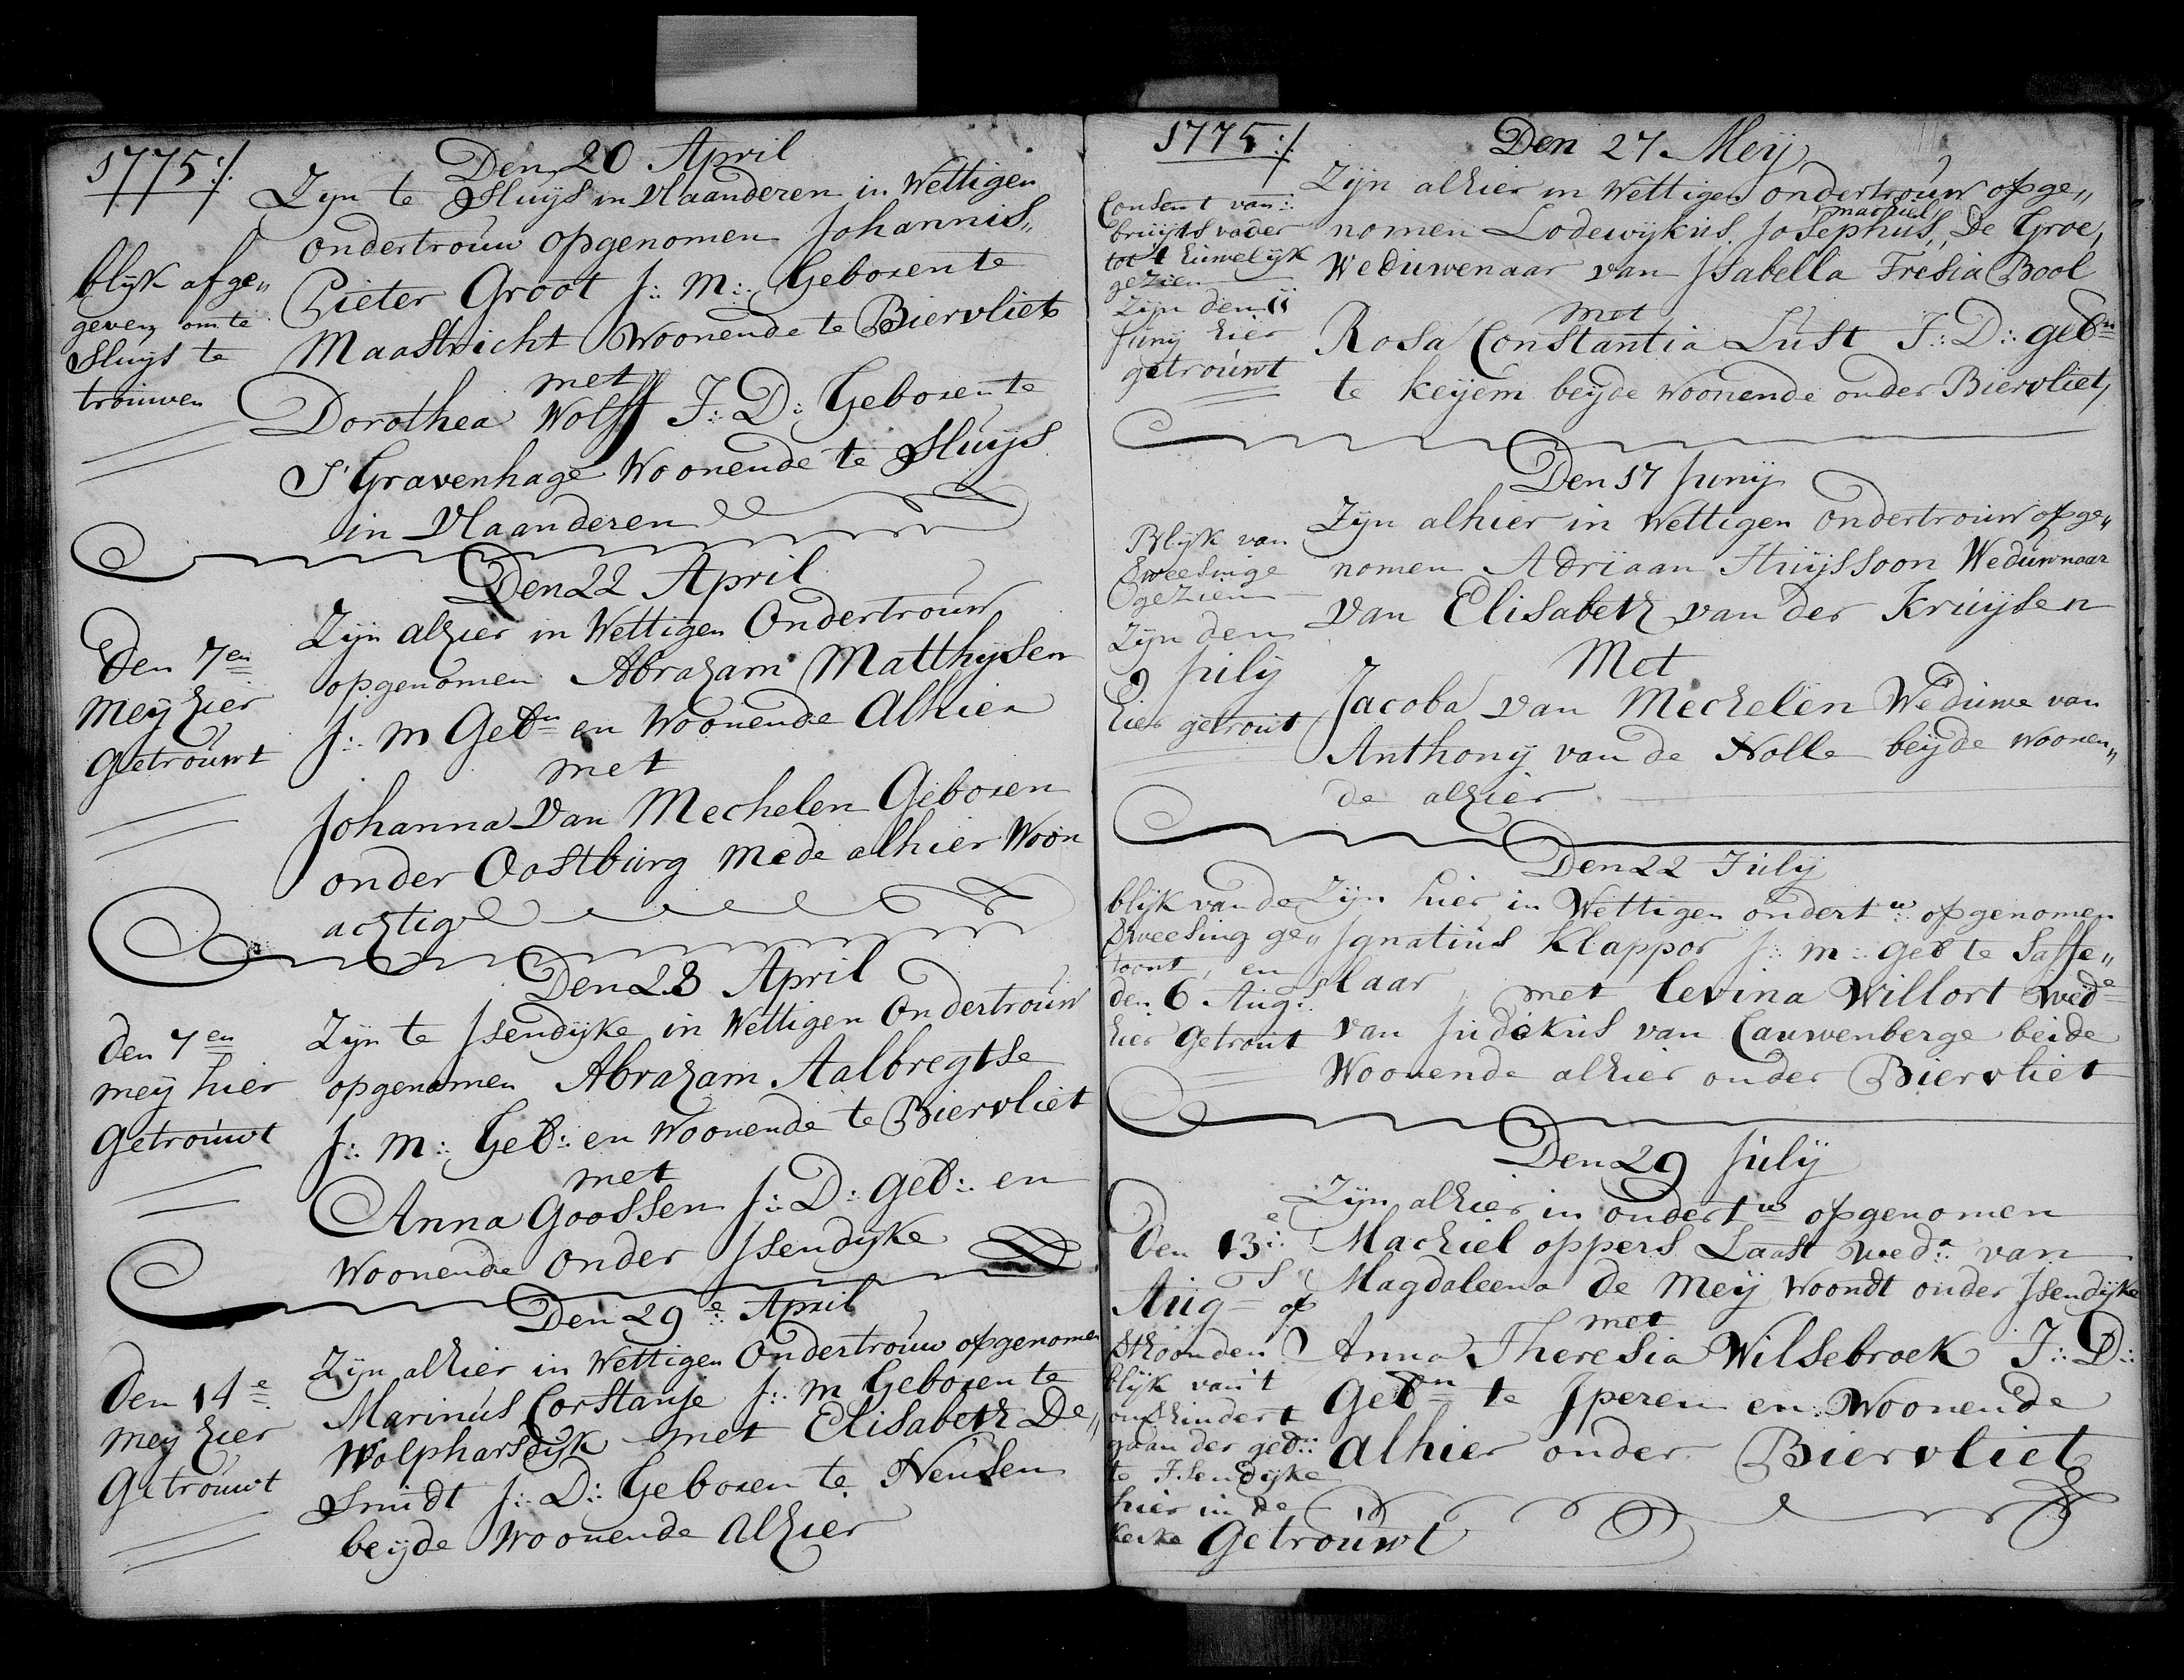 1775:/.
Den 20 April
Zyn te Sluijs in Vlaanderen in Wettigen
ondertrouw opgenomen Johannis„
Pieter Groot J: M: Geboren te
Maastricht Woonende te Biervliet
met
Dorothea Wolff J: D: Geboren te
S'Gravenhage Woonende te Sluijs
in Vlaanderen
blijk afge„
geven om te
Sluijs te
trouwen
Den 22 April
Zijn alhier in Wettigen Ondertrouw
opgenomen Abraham Matthijsen
J: m Gebn en Woonende Alhier
met
Johanna Van Mechelen Geboren
onder Oostburg mede alhier Woon
achtig
Den 7en
Meij hier
Getrouwt
Den 28 April
Zijn te Jsendijke in Wettigen Ondertrouw
opgenomen Abraham Aalbregtse
J: m: Geb: en Woonende te Biervliet
met
Anna Goossen J: D: geb: en
Woonende onder Jsendijke
den 7en
meij hier
Getrouwt
Den 29e April
Zijn alhier in Wettigen Ondertrouw opgenomen
Marinus Corstanje J: m Geboren te
Wolpharsdijk met Elisabeth De„
Smidt J: D: Geboren te Neusen
beijde Woonende Alhier
den 14e
meij hier
Getrouwt
1775:/
Den 27 Meij
Zijn alhier in Wettigen ondertrouw opge„
machiel
nomen Lodewijkus Josephus, De Groe,
Weduwenaar van Jsabella Tresia Bool
met
Rosa Constantia Lust J: D: gebn
te Keijem beijde woonende onder Biervliet,
Consent van
bruijts vader
tot t huwelijk
gezien
Zijn den 11
Junij hier
getrouwt
Den 17 Junij
Zijn alhier in Wettigen Ondertrouw opge„
nomen Adriaan Huijssoon Weduwnaar
van Elisabeth van der Kruijsen
Met
Jacoba van Mechelen Weduwe van
Anthonij van de Nolle beijde woonen„
de alhier
Blijk van
Sweesinge
gezien
Zijn den
9 Julij
hier getrout
Den 22 Julij
Zijn hier in Wettigen ondertw opgenomen
Jgnatius Klappor J: m: geb te Saffe„
slaar, met Levina Willort wede
van Judokus van Cauwenberge beide
Woonende alhier onder Biervliet
blijk van de
Sweesing ge„
toont, en
den 6 Aug:
hier Getrout
Den 29 Julij
Zijn alhier in ondertw opgenomen
Machiel oppers Laast wedr van
Magdaleena de Meij woondt onder Jsendijke
met
Anna Theresia Wilsebroek J: D:
Gebn te Jperen en Woonende
alhier onder Biervliet
Den 13e
Augs op
blijk van't
onhindert
gaan der geb:
te Jsendijke
hier in de
kerke Getrouwt